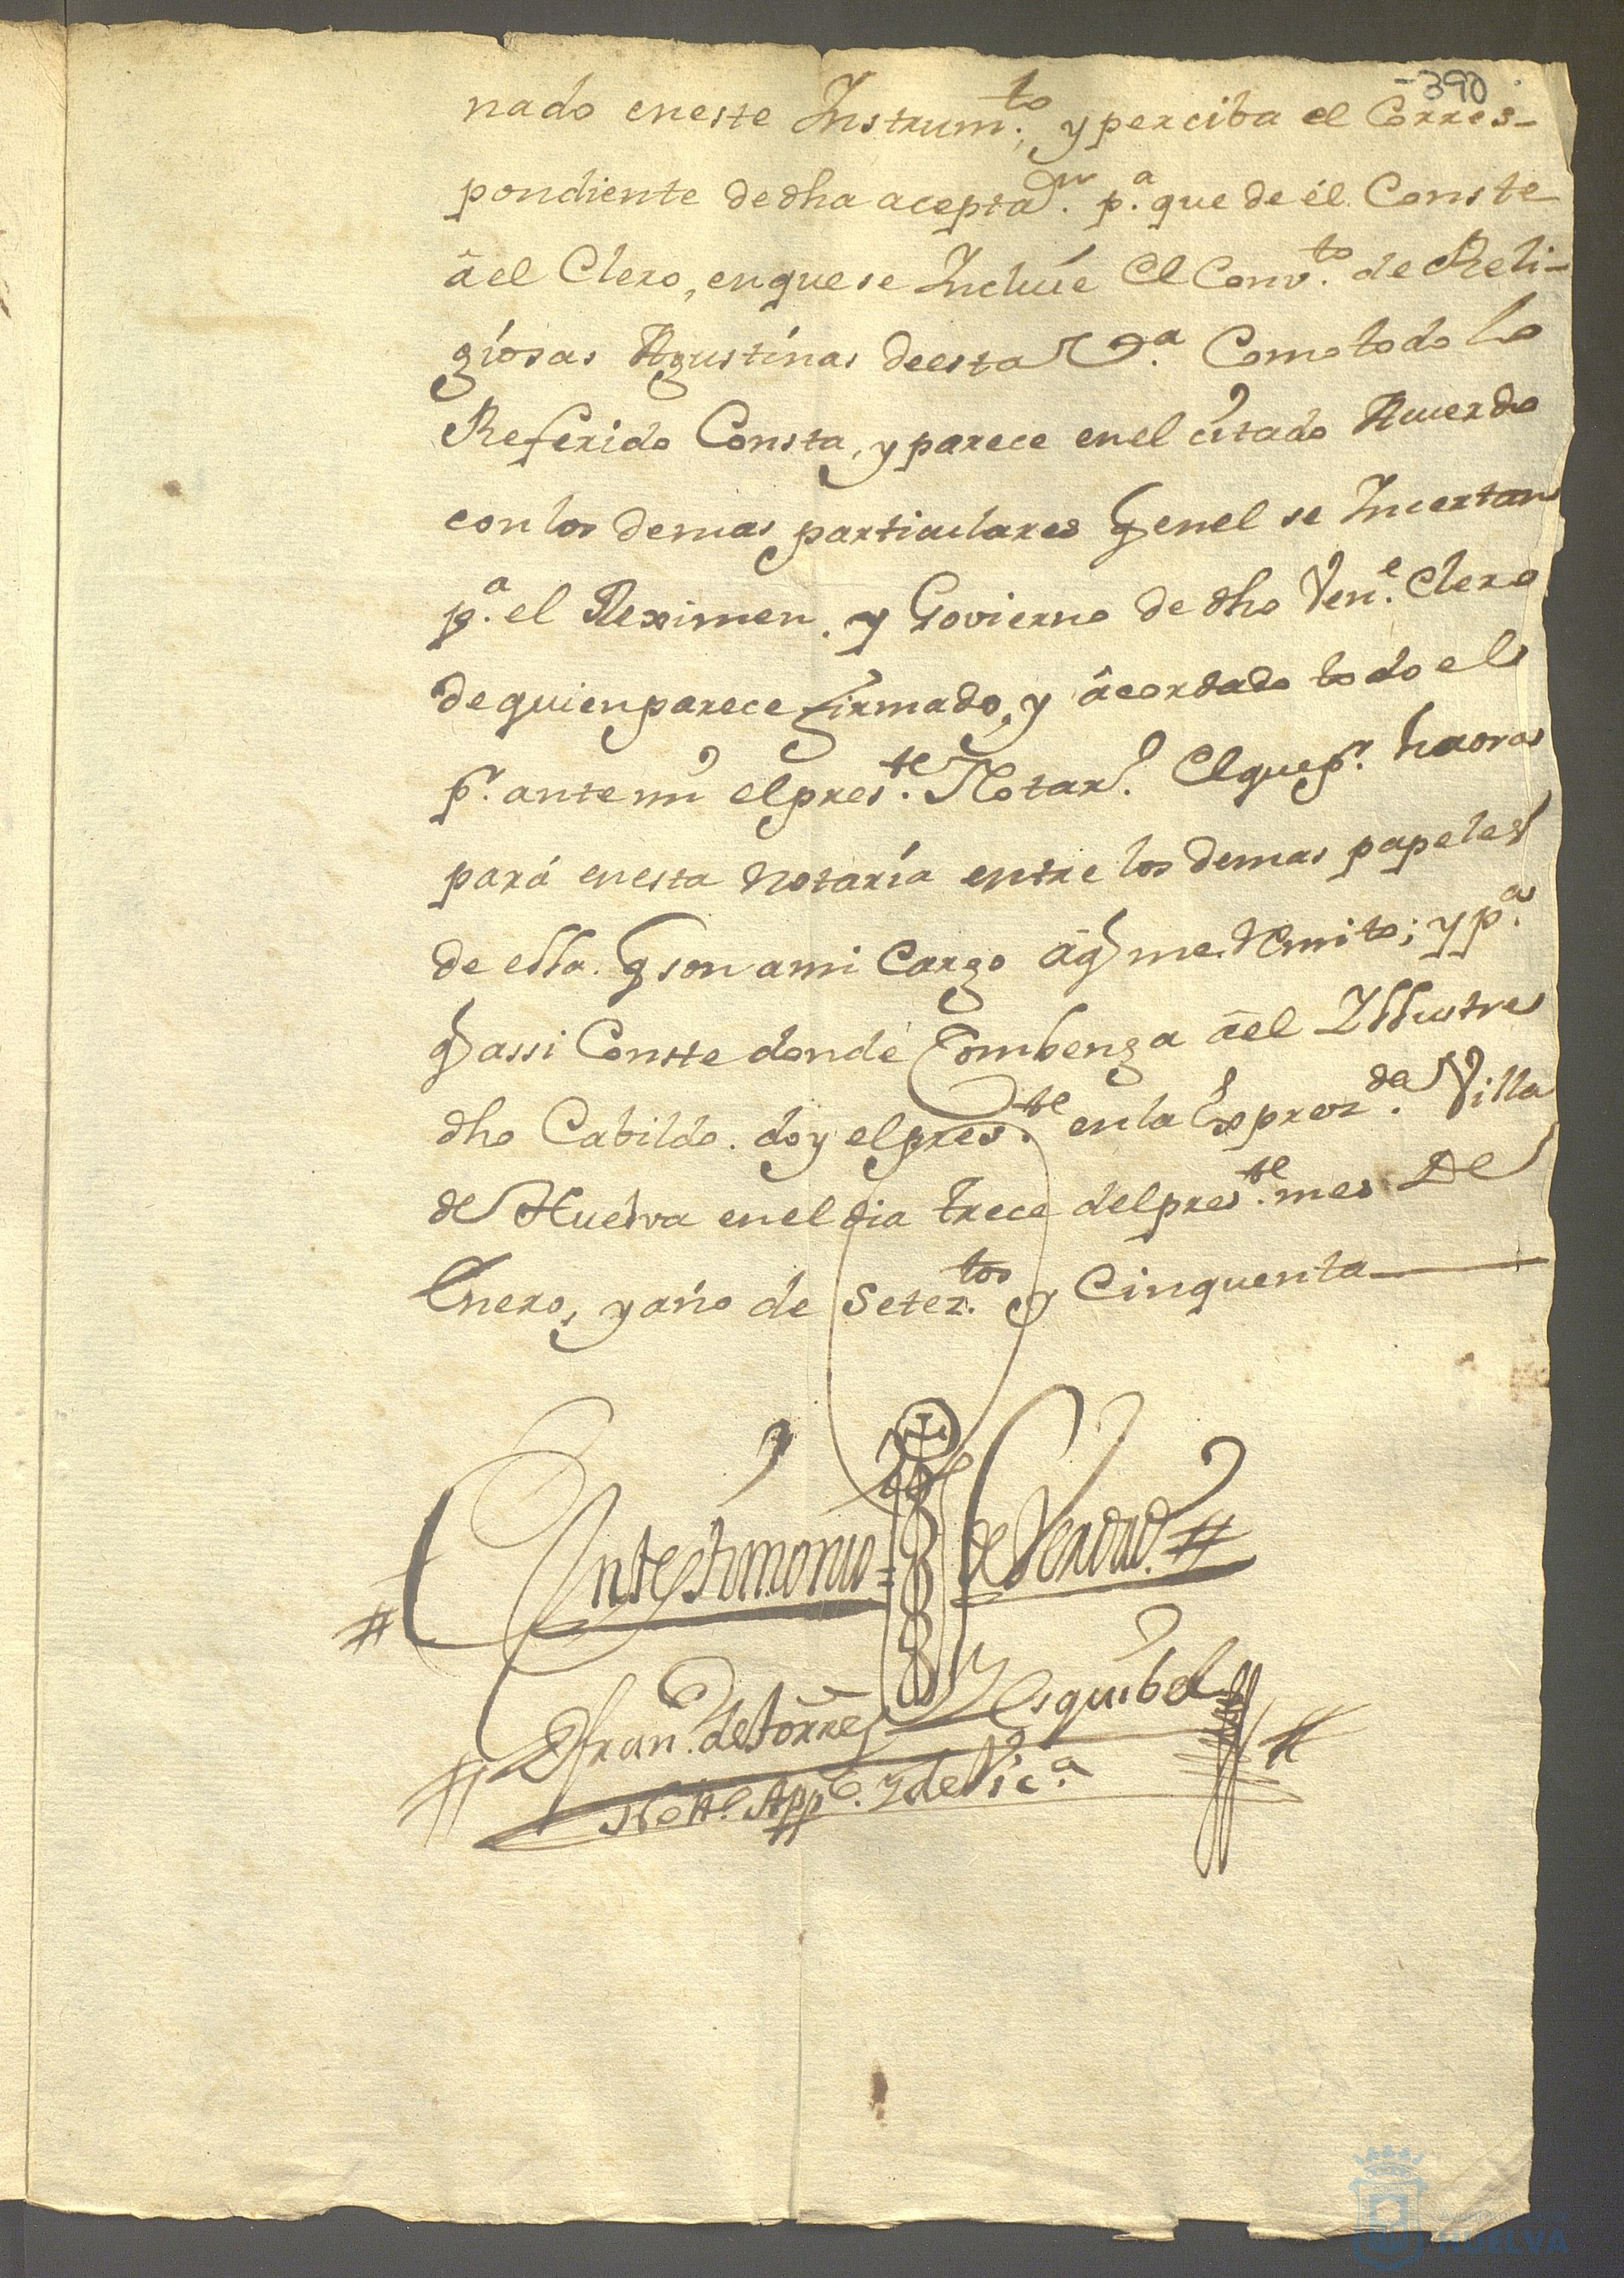 -390
nado en este Instrum.to, y perciba el Corres-
pondiente de dha acepta.n p.a que de él Conste
â el Clero, en que se Incluíe el Conv.to de Reli-
giosas Agustinas de esta V.a Como todo lo
Referido Consta, y parece en el citado Acuerdo
con los demas particulares q en el se Incertan
p.a el Reximen. y Govierno de dho Ven.e Clero
de quien parece firmado, y âcordado todo el
pr. ante mi el pres.te Notar.o El que pr. haora
pará en esta Notaría entre los demas papeles
de ella. q son a mi Cargo â q me Remito; y p.a
q assi Conste donde Combenga âel Illustre
dho Cabildo. doy el pres.te en la Expresz.da Villa
de Huelva en el dia trece del pres.te mes De
Enero, y año de Setez.tos y Cinquenta
En testimonio = de Verdad. #
D fran.co de Torres Y Esquibel
Not.o App.o y de Vic.a
HUELVA